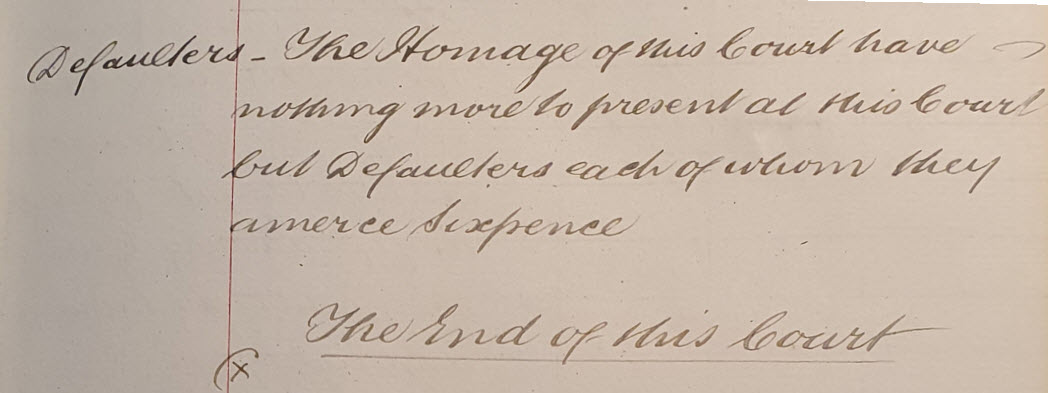 Defaulters - The Homage of this Court have
nothing more to present at this Court
but Defaulters each of whom they
amerce Sixpence
The End of this Court
(x